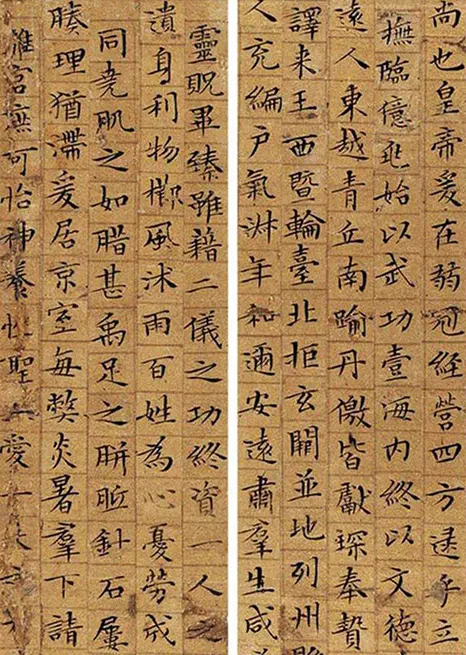 尚也皇帝爰在弱冠經營四方逮乎立
撫臨億兆始以武功壹海内終以文德
遠人東越青丘南踰丹徼皆獻琛奉贄
譯来王西暨輪臺北拒玄闕並地列州
人充編户氣淑年和邇安遠肅羣生咸
靈貺畢臻雖藉二儀之功終資一人之
遺身利物櫛風沐雨百姓為心憂勞成
同堯肌之如腊甚禹足之胼胝針石屢
腠理猶滯爰居京室每弊炎暑羣下請
離宮庶可怡神養性聖上愛一夫之